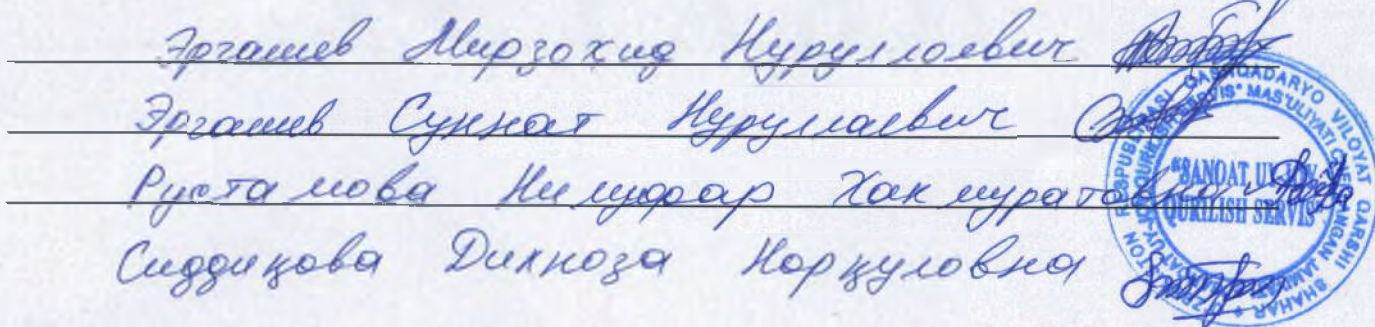 Эргашев Мирзохид Нуруллоевич
Эргашев Суннат Нуруллаевич
Рустамова Нилуфар Хакмуратовна
Сиддиқова Дилноза Норқуловна
"SANOAT, UY-JOY
QURILISH SERVIS"
QASHQADARYO VILOYAT QARSHI SHAHAR